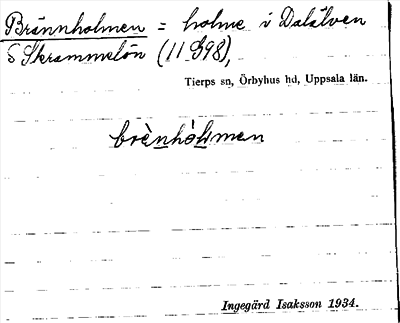 Brännholmen = holme i Dalälven
S Skrammelön (11 898),
Tierps sn, Örbyhus hd, Uppsala län.
brènhòlmen
Ingegärd Isaksson 1934.